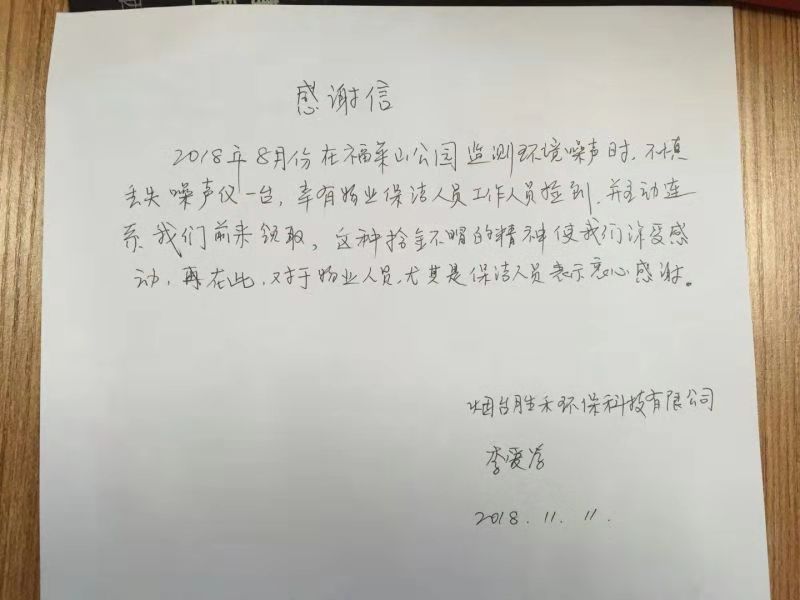 感谢信
2018年8月份在福莱山公园监测环境噪声时，不慎
丢失噪声仪一台，幸有物业保洁人员工作人员捡到，并主动连
系我们前来领取，这种拾金不昧的精神使我们深受感
动，再在此，对于物业人员，尤其是保洁人员表示衷心感谢。
烟台胜禾环保科技有限公司
李爱学
2018.11.11.